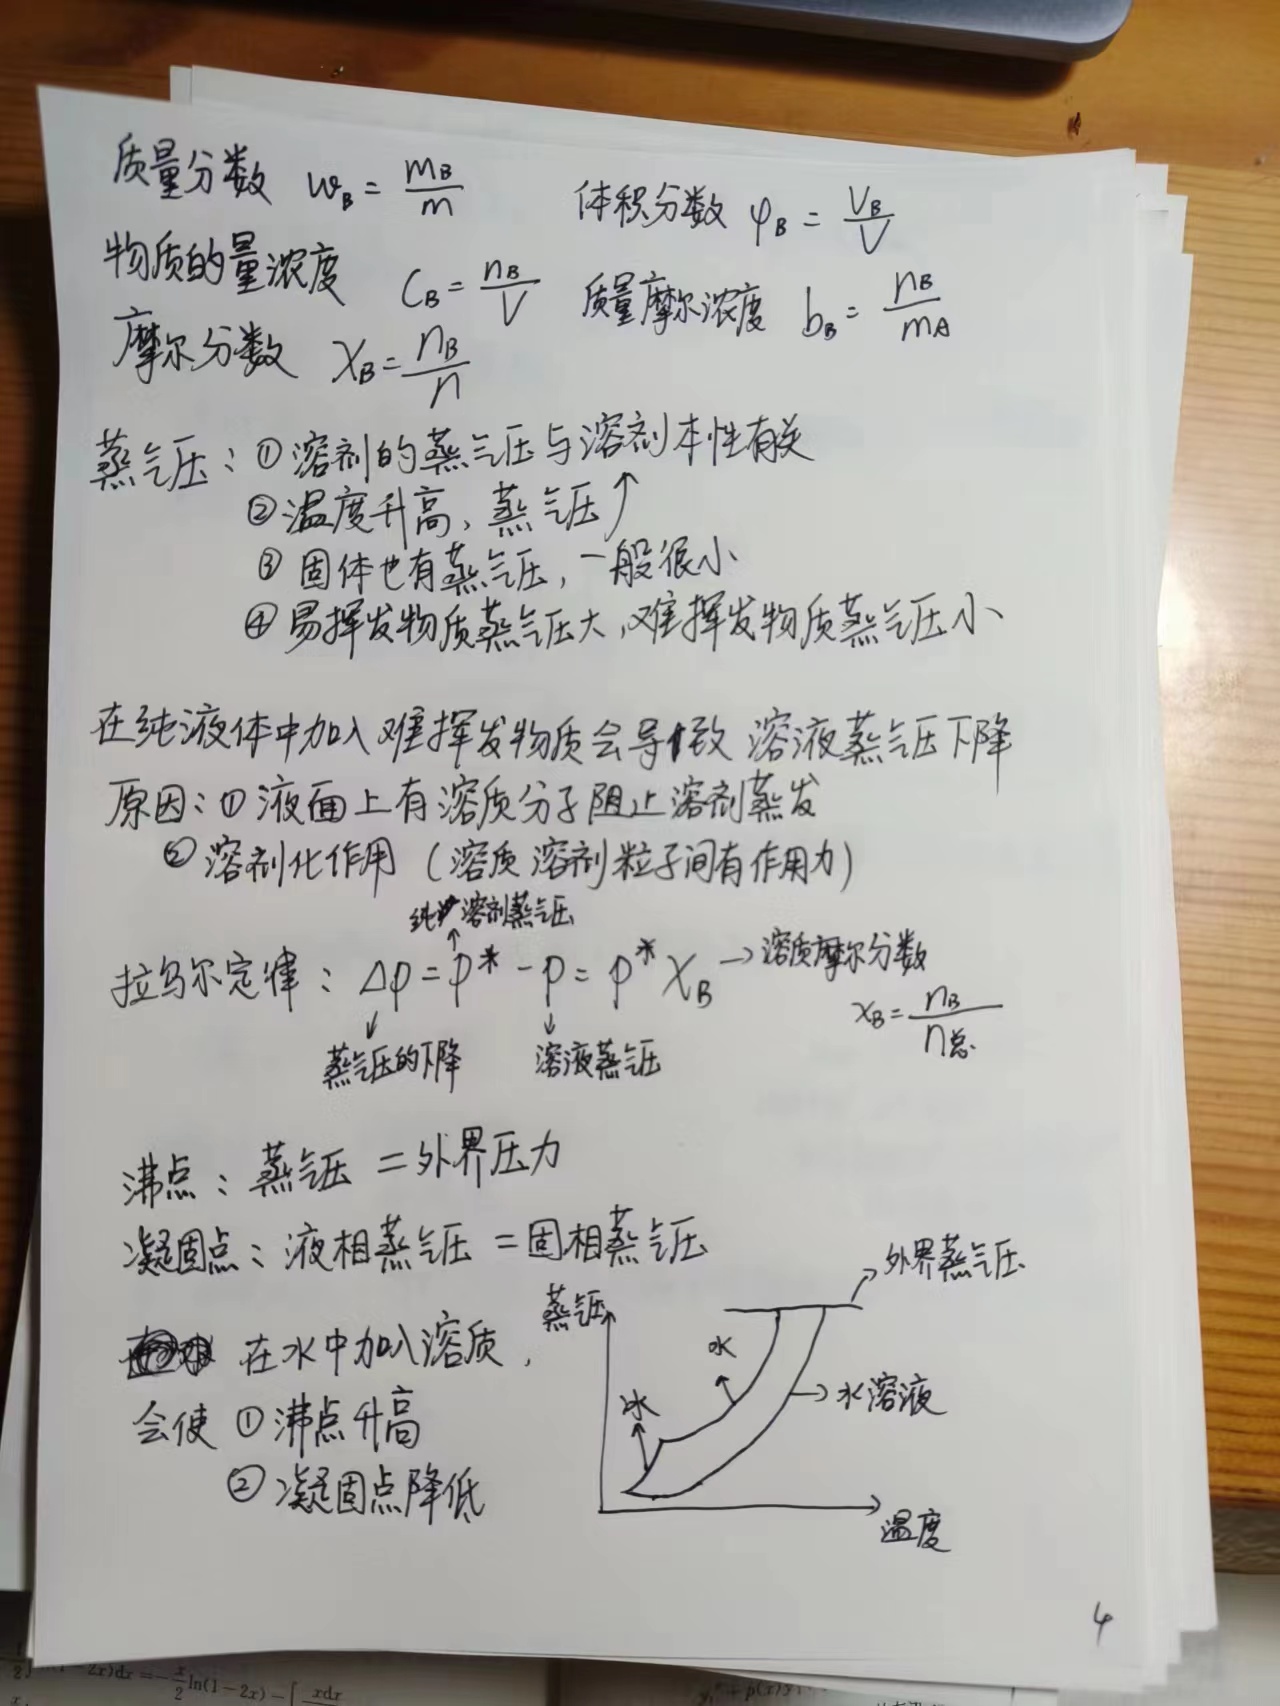 质量分数 wB = mB/m 体积分数 φB = VB/V
物质的量浓度 CB = nB/V 质量摩尔浓度 bB = nB/mA
摩尔分数 XB = nB/n
蒸气压：①溶剂的蒸气压与溶剂本性有关
②温度升高，蒸气压↑
③固体也有蒸气压，一般很小
④易挥发物质蒸气压大，难挥发物质蒸气压小
在纯液体中加入难挥发物质会导致溶液蒸气压下降
原因：①液面上有溶质分子阻止溶剂蒸发
②溶剂化作用（溶质溶剂粒子间有作用力）
纯溶剂蒸气压
拉乌尔定律：Δp = p* - p = p* XB → 溶质摩尔分数
xB = nB/n总
蒸气压的下降 溶液蒸气压
沸点：蒸气压 = 外界压力
凝固点：液相蒸气压 = 固相蒸气压
在水中加入溶质，
会使①沸点升高
②凝固点降低
蒸气压
外界蒸气压
水
冰
水溶液
温度
4
ln(1-2x) - ∫ xdx